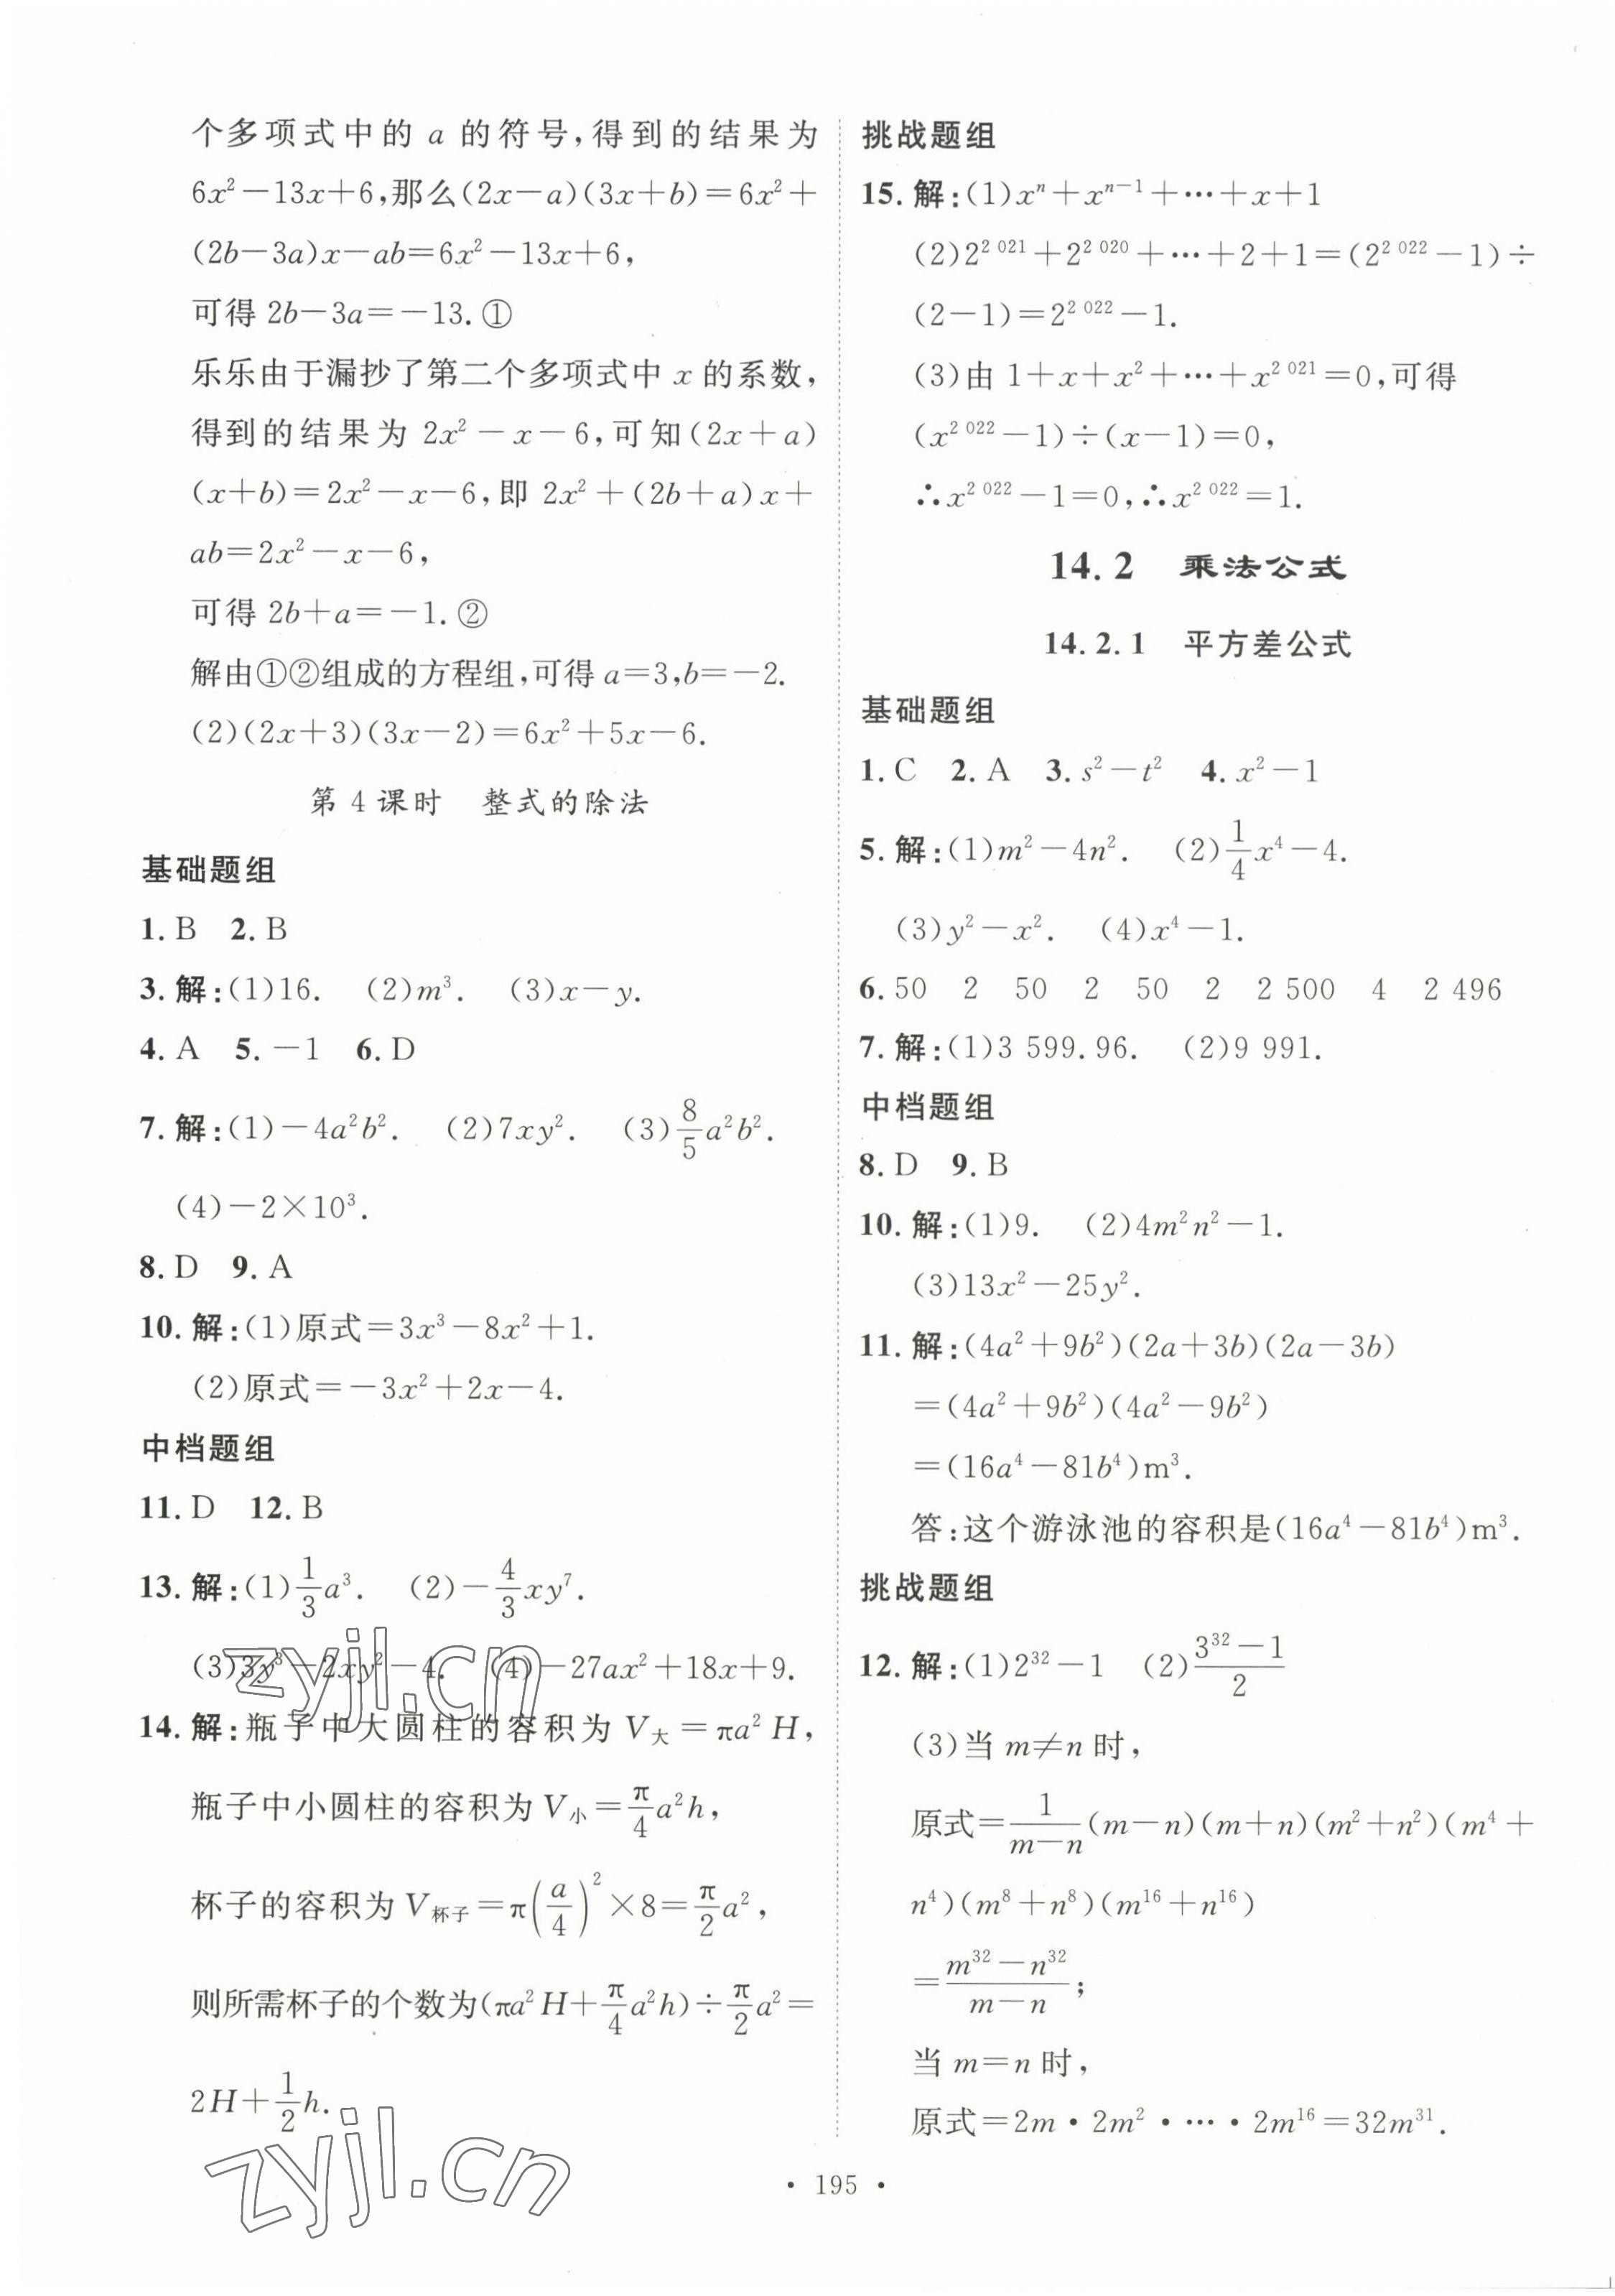 个多项式中的 a 的符号,得到的结果为
6x²-13x+6,那么(2x-a)(3x+b)=6x²+
(2b-3a)x-ab=6x²-13x+6,
可得 2b-3a=-13.①
乐乐由于漏抄了第二个多项式中 x 的系数,
得到的结果为 2x²-x-6,可知(2x+a)
(x+b)=2x²-x-6,即 2x²+(2b+a)x+
ab=2x²-x-6,
可得 2b+a=-1.②
解由①②组成的方程组,可得 a=3,b=-2.
(2)(2x+3)(3x-2)=6x²+5x-6.
第 4 课时 整式的除法
基础题组
1. B 2. B
3. 解:(1)16. (2)m³. (3)x-y.
4. A 5. -1 6. D
7. 解:(1)-4a²b². (2)7xy². (3)8/5 a²b².
(4)-2×10³.
8. D 9. A
10. 解:(1)原式=3x³-8x²+1.
(2)原式=-3x²+2x-4.
中档题组
11. D 12. B
13. 解:(1)1/3 a³. (2)-4/3 xy⁷.
(3)3y³-2xy²-4. (4)-27ax²+18x+9.
14. 解:瓶子中大圆柱的容积为 V大=πa²H,
瓶子中小圆柱的容积为 V小=π/4 a²h,
杯子的容积为 V杯子=π(a/4)²×8=π/2 a²,
则所需杯子的个数为(πa²H+π/4 a²h)÷π/2 a²=
2H+1/2 h.
挑战题组
15. 解:(1)xⁿ+xⁿ⁻¹+…+x+1
(2)2^2 021+2^2 020+…+2+1=(2^2 022-1)÷
(2-1)=2^2 022-1.
(3)由 1+x+x²+…+x^2 021=0,可得
(x^2 022-1)÷(x-1)=0,
∴x^2 022-1=0,∴x^2 022=1.
14.2 乘法公式
14.2.1 平方差公式
基础题组
1. C 2. A 3. s²-t² 4. x²-1
5. 解:(1)m²-4n². (2)1/4 x⁴-4.
(3)y²-x². (4)x⁴-1.
6. 50 2 50 2 50 2 2 500 4 2 496
7. 解:(1)3 599.96. (2)9 991.
中档题组
8. D 9. B
10. 解:(1)9. (2)4m²n²-1.
(3)13x²-25y².
11. 解:(4a²+9b²)(2a+3b)(2a-3b)
=(4a²+9b²)(4a²-9b²)
=(16a⁴-81b⁴)m³.
答:这个游泳池的容积是(16a⁴-81b⁴)m³.
挑战题组
12. 解:(1)2³²-1 (2)(3³²-1)/2
(3)当 m≠n 时,
原式=1/(m-n) (m-n)(m+n)(m²+n²)(m⁴+
n⁴)(m⁸+n⁸)(m¹⁶+n¹⁶)
=(m³²-n³²)/(m-n);
当 m=n 时,
原式=2m·2m²·…·2m¹⁶=32m³¹.
· 195 ·
zyjl.cn
zyjl.cn